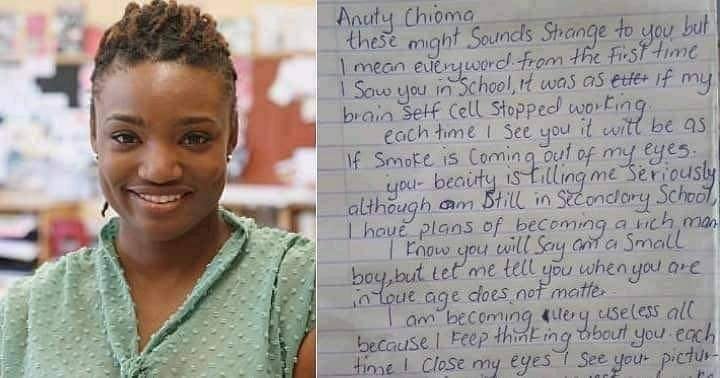 Anuty Chioma
these might Sounds Strange to you but
I mean everyword from the First time
I Saw you in School, it was as if my
brain Self Cell Stopped working.
each time I See you it will be as
If Smoke is Coming out of my eyes.
your beauty is killing me Seriously
although am Still in Secondary School,
I have plans of becoming a rich man
I know you will Say am a Small
boy, but Let me tell you when you are
in Love age does not matter
I am becoming very useless all
because I Keep thinking about you each
time I Close my eyes I See your pictur